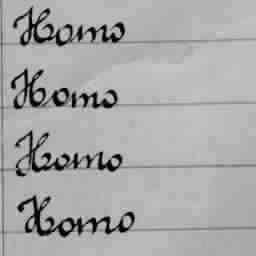 Homo
Homo
Homo
Homo